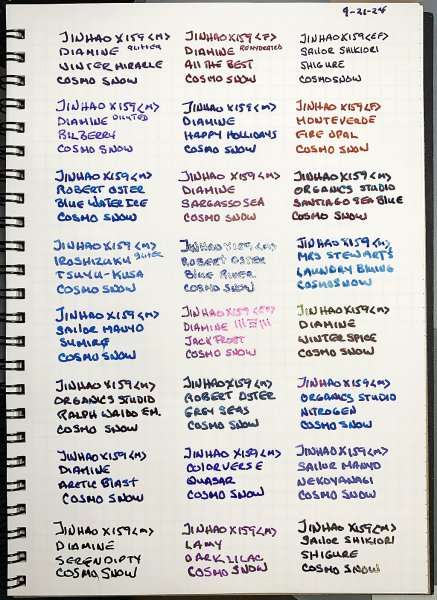 9-21-24
JINHAO X159 <M>
DIAMINE GLITTER
WINTER MIRACLE
COSMO SNOW
JINHAO X159 <F>
DIAMINE REHYDRATED
ALL THE BEST
COSMO SNOW
JINHAO X159 <EF>
SAILOR SHIKIORI
SHIGURE
COSMO SNOW
JINHAO X159 <M>
DIAMINE DILUTED
BILBERRY
COSMO SNOW
JINHAO X159 <M>
DIAMINE
HAPPY HOLIDAYS
COSMO SNOW
JINHAO X159 <F>
MONTEVERDE
FIRE OPAL
COSMO SNOW
JINHAO X159 <M>
ROBERT OSTER
BLUE WATER ICE
COSMO SNOW
JINHAO X159 <M>
DIAMINE
SARGASSO SEA
COSMO SNOW
JINHAO X159 <M>
ORGANICS STUDIO
SANTIAGO SEA BLUE
COSMO SNOW
JINHAO X159 <M>
IROSHIZUKU GLITTER
TSUYU-KUSA
COSMO SNOW
JINHAO X159 <M>
ROBERT OSTER
BLUE RIVER
COSMO SNOW
JINHAO X159 <M>
MRS STEWART'S
LAUNDRY BLUING
COSMO SNOW
JINHAO X159 <M>
SAILOR MANYO
SUMIRE
COSMO SNOW
JINHAO X159 <EF>
DIAMINE
JACK FROST
COSMO SNOW
JINHAO X159 <M>
DIAMINE
WINTER SPICE
COSMO SNOW
JINHAO X159 <M>
ORGANICS STUDIO
RALPH WALDO EM.
COSMO SNOW
JINHAO X159 <M>
ROBERT OSTER
GREY SEAS
COSMO SNOW
JINHAO X159 <M>
ORGANICS STUDIO
NITROGEN
COSMO SNOW
JINHAO X159 <M>
DIAMINE
ARCTIC BLAST
COSMO SNOW
JINHAO X159 <M>
COLORVERSE
QUASAR
COSMO SNOW
JINHAO X159 <M>
SAILOR MANYO
NEKOYANAGI
COSMO SNOW
JINHAO X159 <M>
DIAMINE
SERENDIPTY
COSMO SNOW
JINHAO X159 <M>
LAMY
DARK LILAC
COSMO SNOW
JINHAO X159 <M>
SAILOR SHIKIORI
SHIGURE
COSMO SNOW